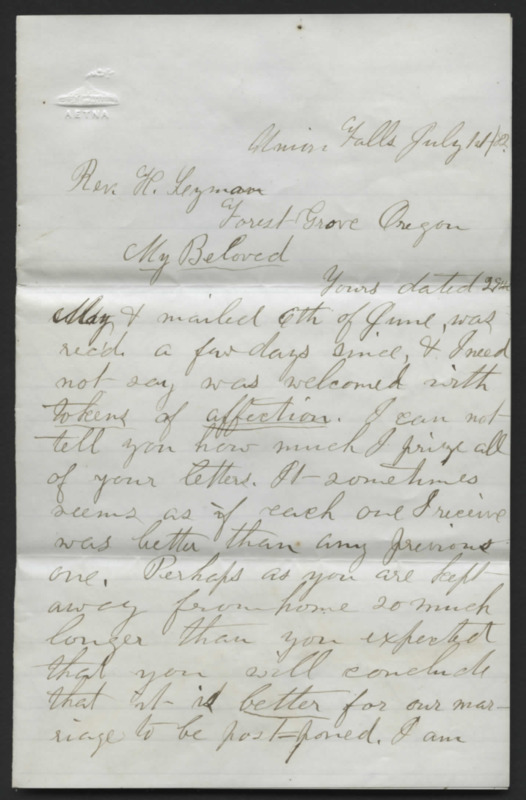 AETNA
Union Falls July 1st/
Rev. H. Lyman
Forest Grove Oregon
My Beloved
Yours dated 29th
May & mailed 6th of June, was
rec'd. a few days since, & I need
not say was welcomed with
tokens of affection. I can not
tell you how much I prize all
of your letters. It sometimes
seems as if each one I receive
was better than any previous
one. Perhaps as you are kept
away from home so much
longer than you expected
that you will conclude
that it is better for our mar-
riage to be post=poned. I am